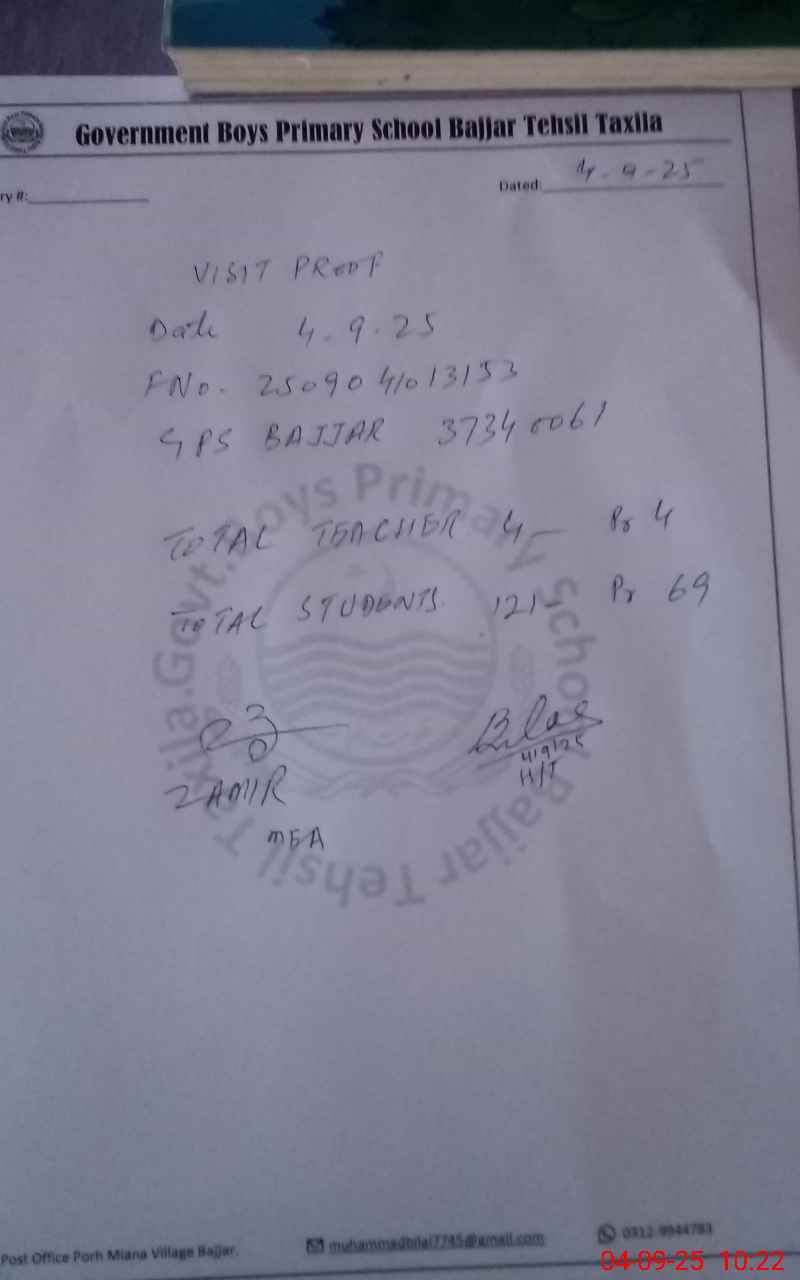 Government Boys Primary School Bajjar Tehsil Taxila
ry #:
Dated: 4-9-25
VISIT PROOF
Date 4.9.25
FNo. 2509041013153
GPS BAJJAR 37340061
TOTAL TEACHER 4 — Pr 4
TOTAL STUDENTS. 121- Pr 69
ZAMIR
MEA
Bilal
4/9/25
H/T
Govt. Boys Primary School Bajjar Tehsil Taxila.
Post Office Porh Miana Village Bajjar.
muhammadbilal7745@gmail.com
0312-9944783
04-09-25 10.22